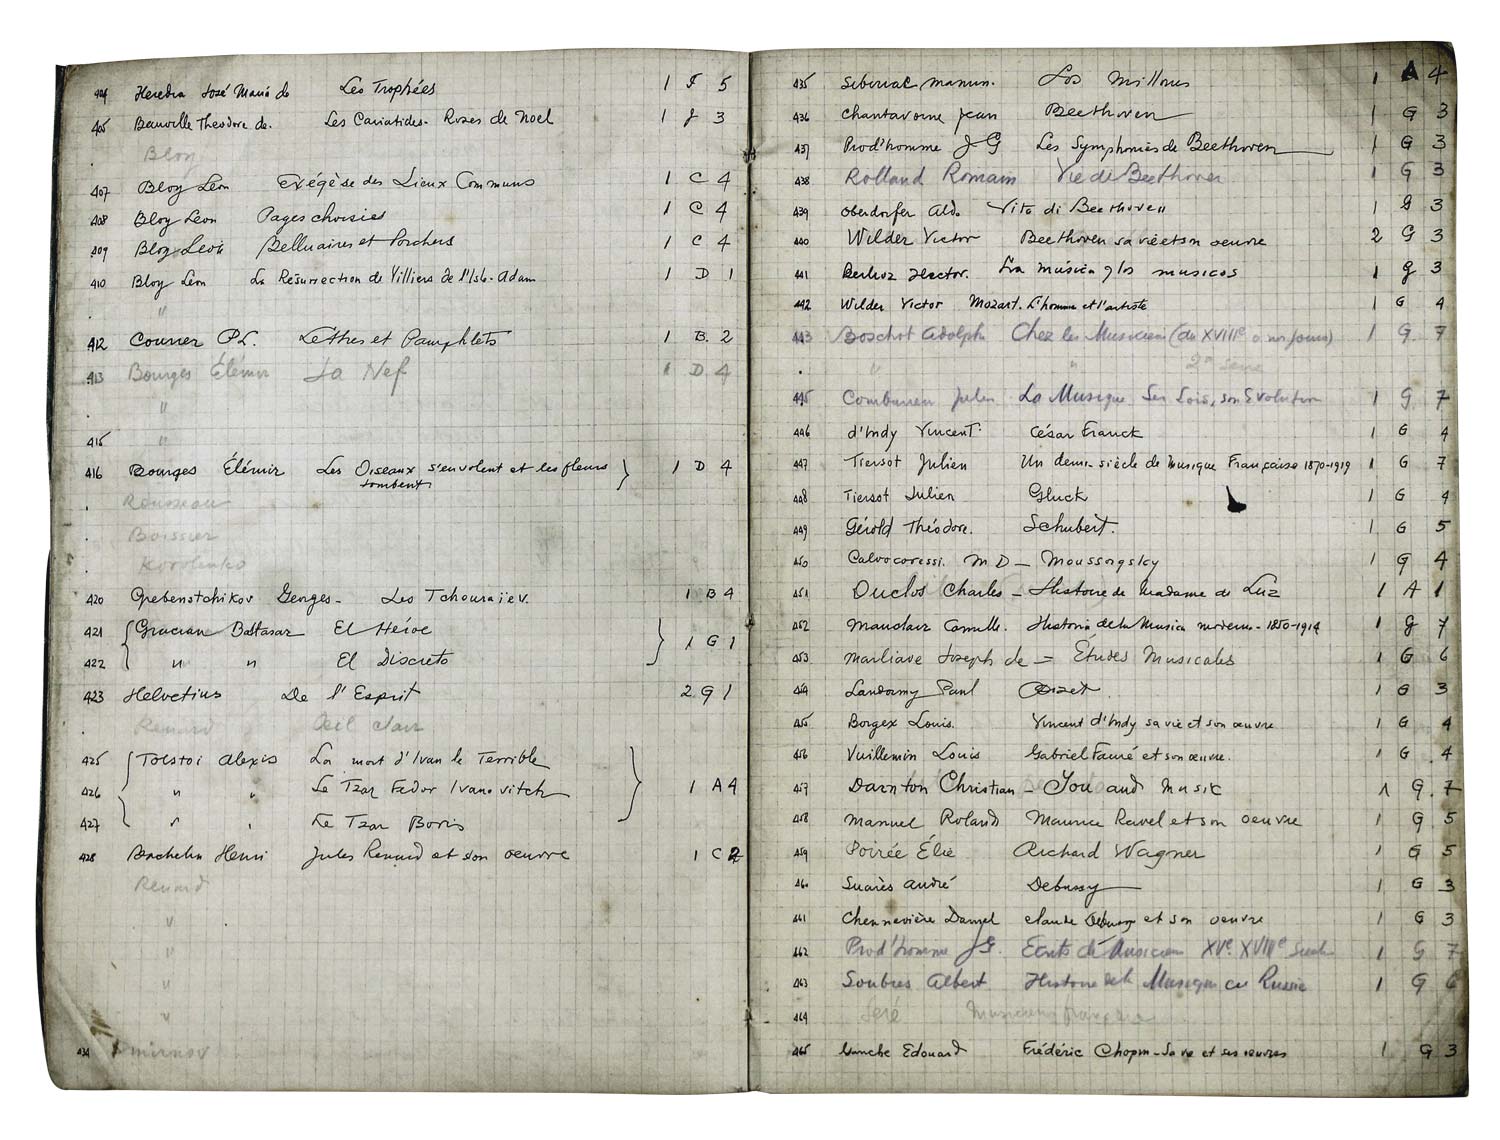 404 Heredia José Maria de Les Trophées 1 F 5
405 Banville Theodore de. Les Cariatides - Roses de Noel 1 J 3
Bloy
407 Bloy Léon Exégèse des Lieux Communs 1 C 4
408 Bloy Léon Pages choisies 1 C 4
409 Bloy Léon Belluaires et Porchers 1 C 4
410 Bloy Léon La Résurrection de Villiers de l'Isle-Adam 1 D 1
"
412 Courier P.L. Lettres et Pamphlets 1 B. 2
413 Bourges Élémir La Nef 1 D 4
"
415 "
416 Bourges Élémir Les Oiseaux s'envolent et les fleurs 1 D 4
tombent
Rousseau
Boissier
Korolenko
420 Grebenstchikov Georges - Les Tchouraïev. 1 B 4
421 Gracian Baltasar El Héroe 1 G 1
422 " " El Discreto
423 Helvetius De l'Esprit 2 G 1
Renard Œil clair
425 Tolstoi Alexis La mort d'Ivan le Terrible
426 " " Le Tzar Fedor Ivanovitch 1 A 4
427 " " Le Tzar Boris
428 Bachelin Henri Jules Renard et son oeuvre 1 C 2
Renard
"
"
"
"
434 Smirnov
435 Los millones 1 A 4
436 Chantavoine Jean Beethoven 1 G 3
437 Prod'homme J G Les Symphonies de Beethoven 1 G 3
438 Rolland Romain Vie de Beethoven 1 G 3
439 Oberdorfer Aldo Vita di Beethoven 1 G 3
440 Wilder Victor Beethoven sa vie et son oeuvre 2 G 3
441 Berlioz Hector. La música y los musicos 1 G 3
442 Wilder Victor Mozart. L'homme et l'artiste 1 G 4
443 Boschot Adolphe Chez les Musiciens (du XVIIIe à nos jours) 1 G 7
" " 2e serie
445 Combarieu Jules La Musique Ses Lois, son Evolution 1 G 7
446 d'Indy Vincent César Franck 1 G 4
447 Tiersot Julien Un demi-siècle de Musique Française 1870-1919 1 G 7
448 Tiersot Julien Gluck 1 G 4
449 Gérold Théodore. Schubert. 1 G 5
450 Calvocoressi. M D - Moussorgsky 1 G 4
451 Duclos Charles - Histoire de Madame de Luz 1 A 1
452 Mauclair Camille. Historia de la Musica moderna - 1850-1914 1 G 7
453 Marliave Joseph de = Études Musicales 1 G 6
454 Landormy Paul Bizet 1 G 3
455 Borgex Louis. Vincent d'Indy sa vie et son œuvre 1 G 4
456 Vuillemin Louis Gabriel Fauré et son œuvre. 1 G 4
457 Darnton Christian - You and Music 1 G. 7
458 Manuel Roland Maurice Ravel et son oeuvre 1 G 5
459 Poirée Élie Richard Wagner 1 G 5
460 Suarès André Debussy 1 G 3
461 Chennevière Daniel Claude Debussy et son oeuvre 1 G 3
462 Prod'homme J G. Ecrits de Musiciens XVe. XVIIIe Siecle 1 G 7
463 Soubies Albert Histoire de la Musique en Russie 1 G 6
464 Seré Musiciens français
465 Ganche Edouard Frédéric Chopin - Sa vie et ses œuvres 1 G 3